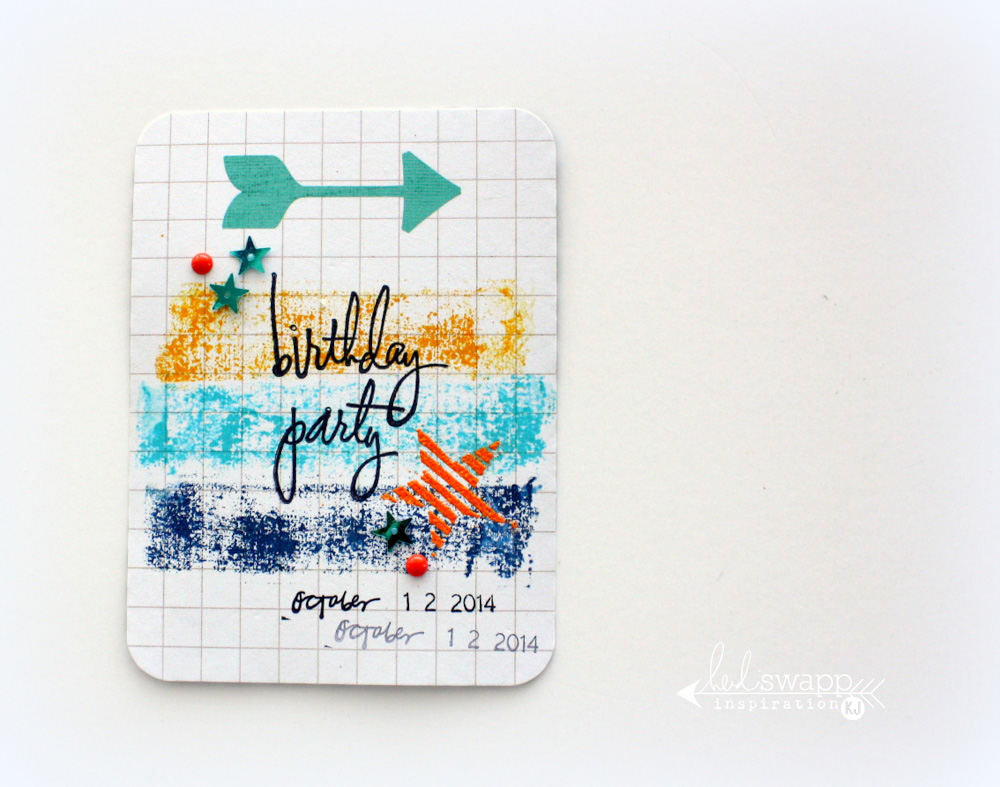 birthday
party
october 1 2 2014
october 1 2 2014
heidi swapp
inspiration KJ